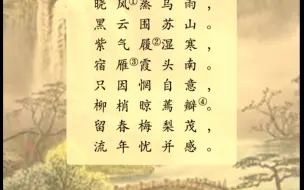 晓风①蒸鸟雨，
黑云围苏山。
紫气履②湿寒，
宿雁③霞头南。
只因惘自意，
柳梢晾蒿瓣④。
留春梅梨茂，
流年忧并感。